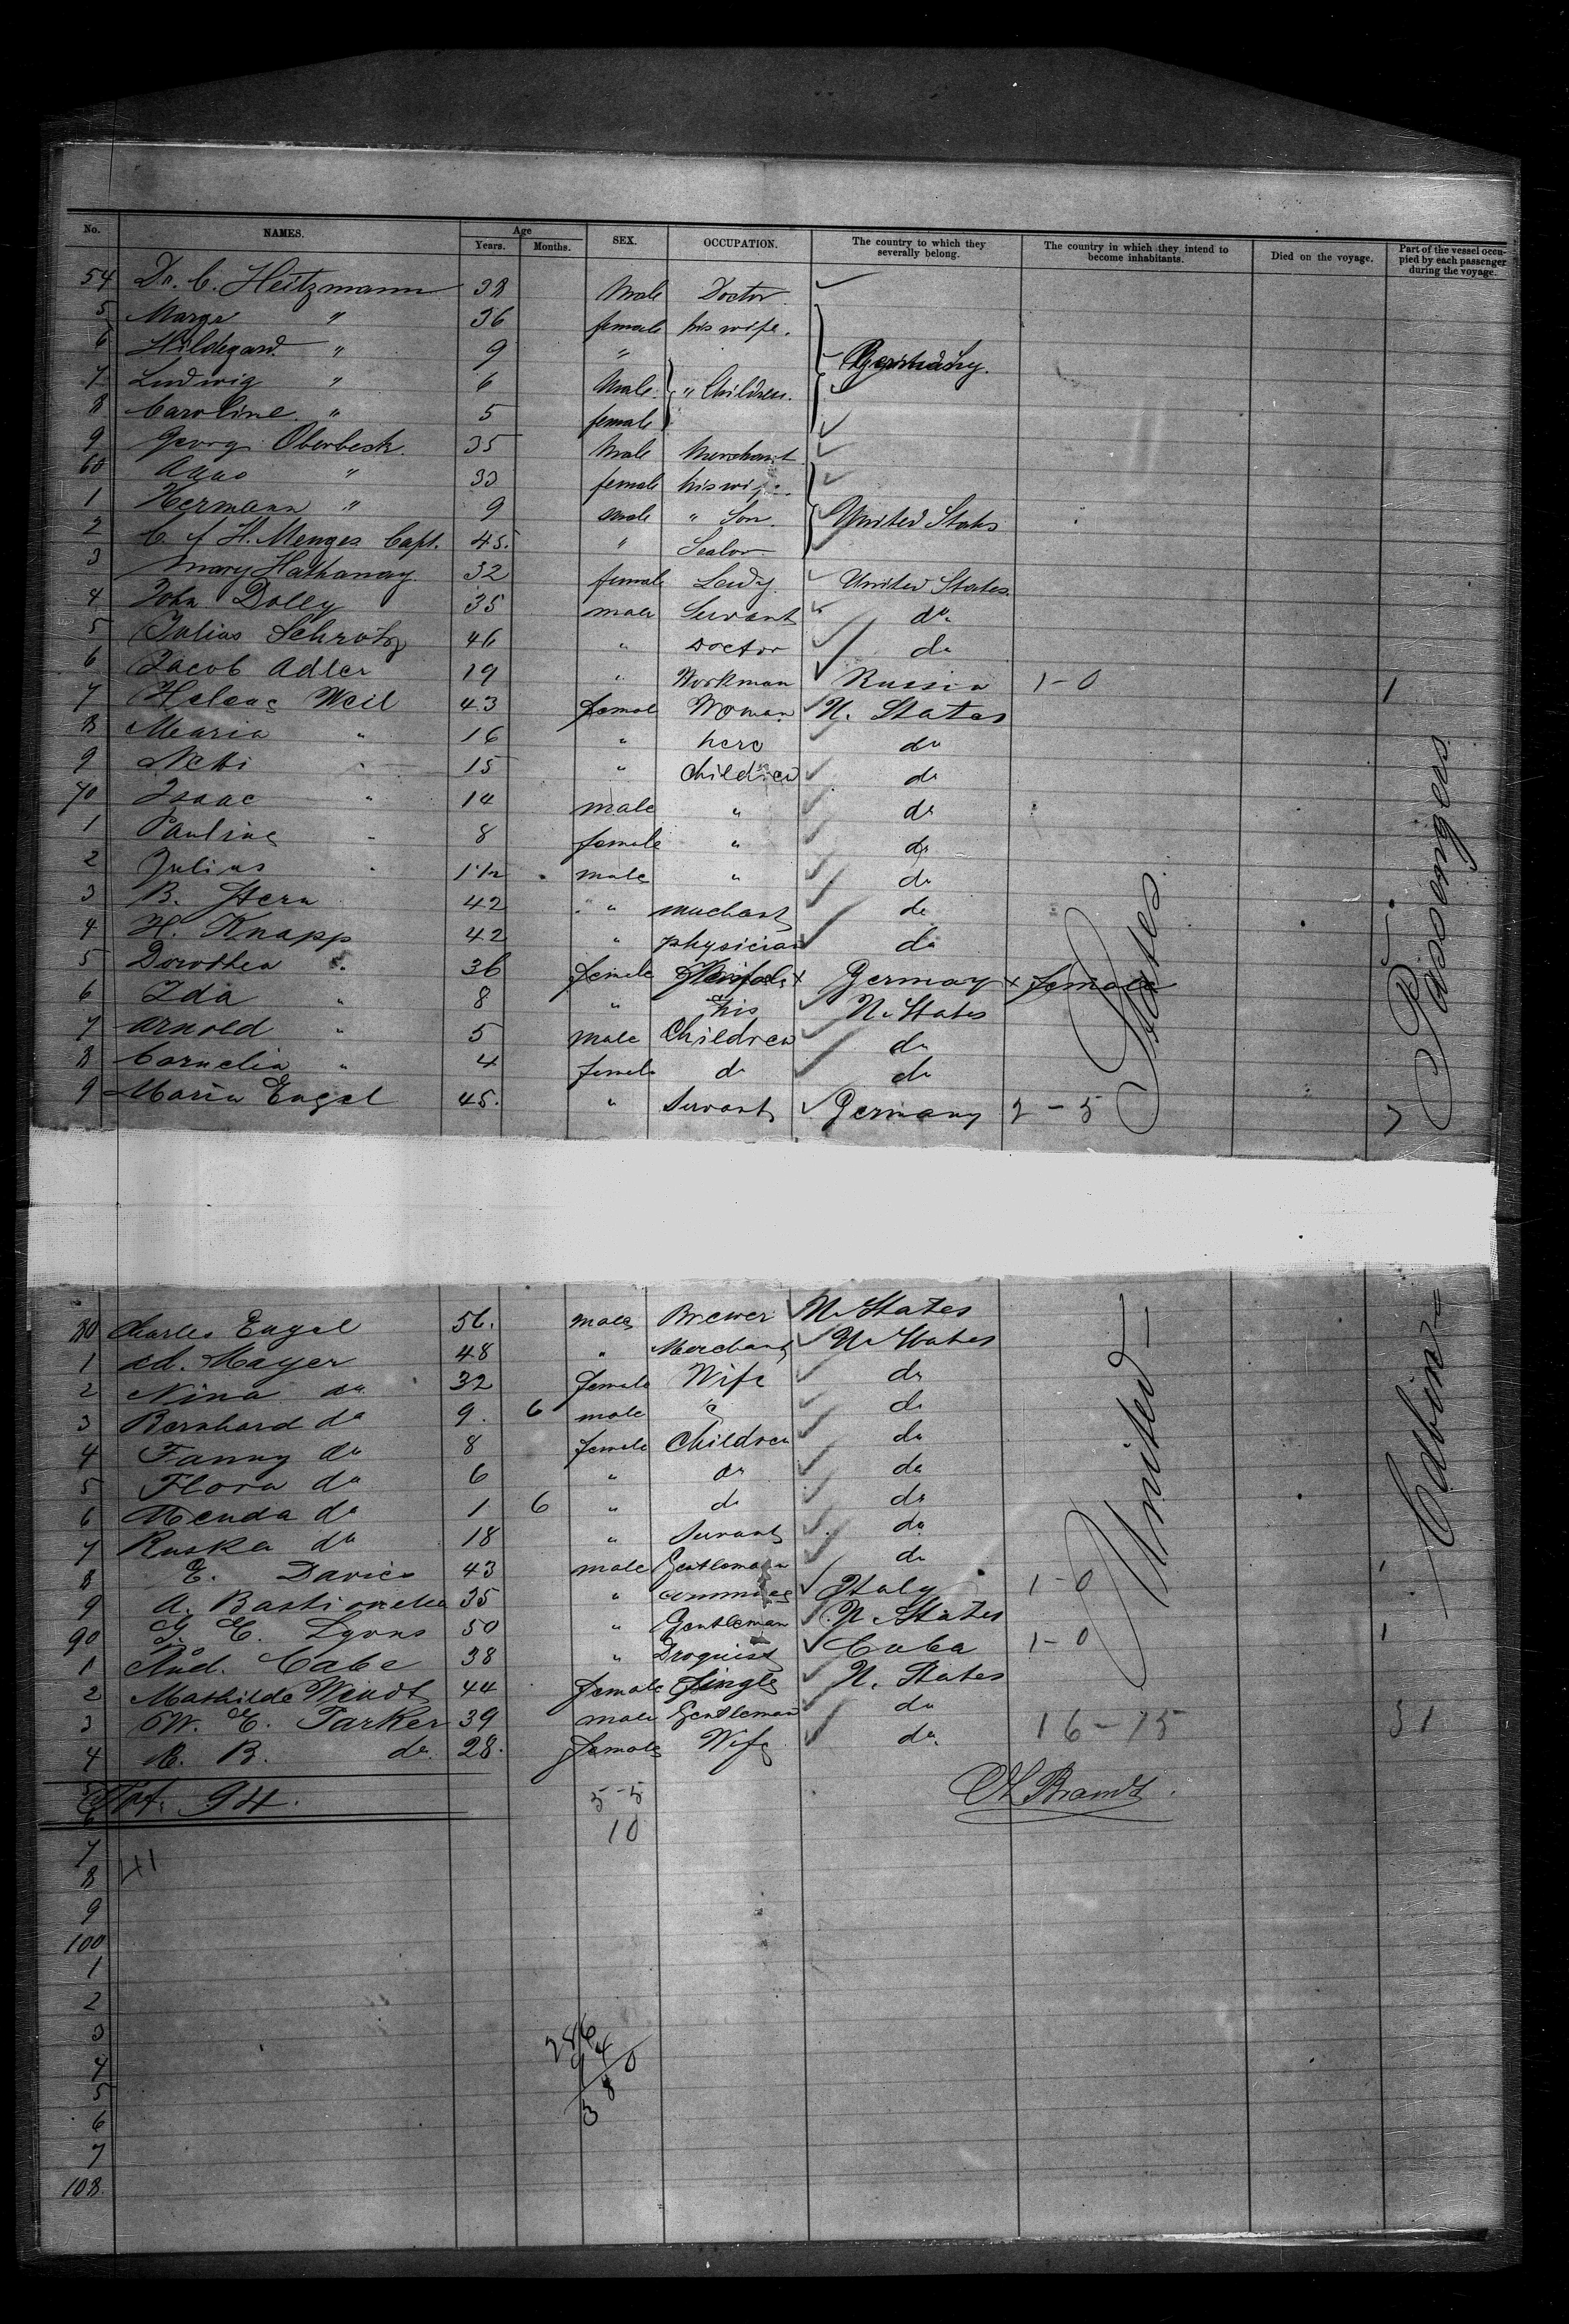 No. NAMES. Age Years. Months. SEX. OCCUPATION. The country to which they severally belong. The country in which they intend to become inhabitants. Died on the voyage. Part of the vessel occupied by each passenger during the voyage.
54 Dr. C. Heitzmann 38 Male Doctor
5 Marga " 36 female his wife.
6 Hildegard " 9 " Germany.
7 Ludwig " 6 Male " Children.
8 Caroline " 5 female
9 Georg Oberbeck 35 Male Merchant
60 " 33 female his
1 Hermann " 9 male " Son. United States
2 H. Menges Capt. 45. " Sealor
3 Mary Hathaway 32 female Lady United States
4 John Dolly 35 male Servant do
5 Julius 46 " Doctor do
6 Jacob Adler 19 " Workman Russia 1-0 1
7 Helene Weil 43 female Woman U. States
8 Maria " 16 " here do
9 Netti " 15 " Children do
70 Isaac " 14 male " do
1 Pauline " 8 female " do
2 Julius " male " do
3 B. Stern 42 " do
4 H. Knapp 42 " physician do
5 Dorothea " 36 female x Germay x female
6 Ida " 8 " his U. States
7 Arnold " 5 male Children do
8 Cornelia " 4 female do do
9 Maria Engel 45. " Servant Germany 2-5 7
80 Charles Engel 56. male Brewer U. States
1 Ad. Mayer 48 " Merchant U. States
2 Nina do 32 female Wife do
3 Bernhard do 9. 6 male do
4 Fanny do 8 female Children do
5 Flora do 6 " do do
6 do 1 6 " do do
7 Ruska do 18 " Servant do
8 E. Davies 43 male Gentleman do
9 A. 35 " Italy 1-0 1
90 E. Lyons 50 " Gentleman U. States
1 And. Cabe 38 " Droguist Cuba 1-0 1
2 Mathilde Wendt 44 female Single U. States
3 W. E. Parker 39 male Gentleman do
4 B. do 28. female Wife do. 16-15 31
5 Tot. 94. 5-5
6 10
7
8 41
9
100
1
2
3 286
4 94
5 380
6
7
108.
United States
Cabin Passengers